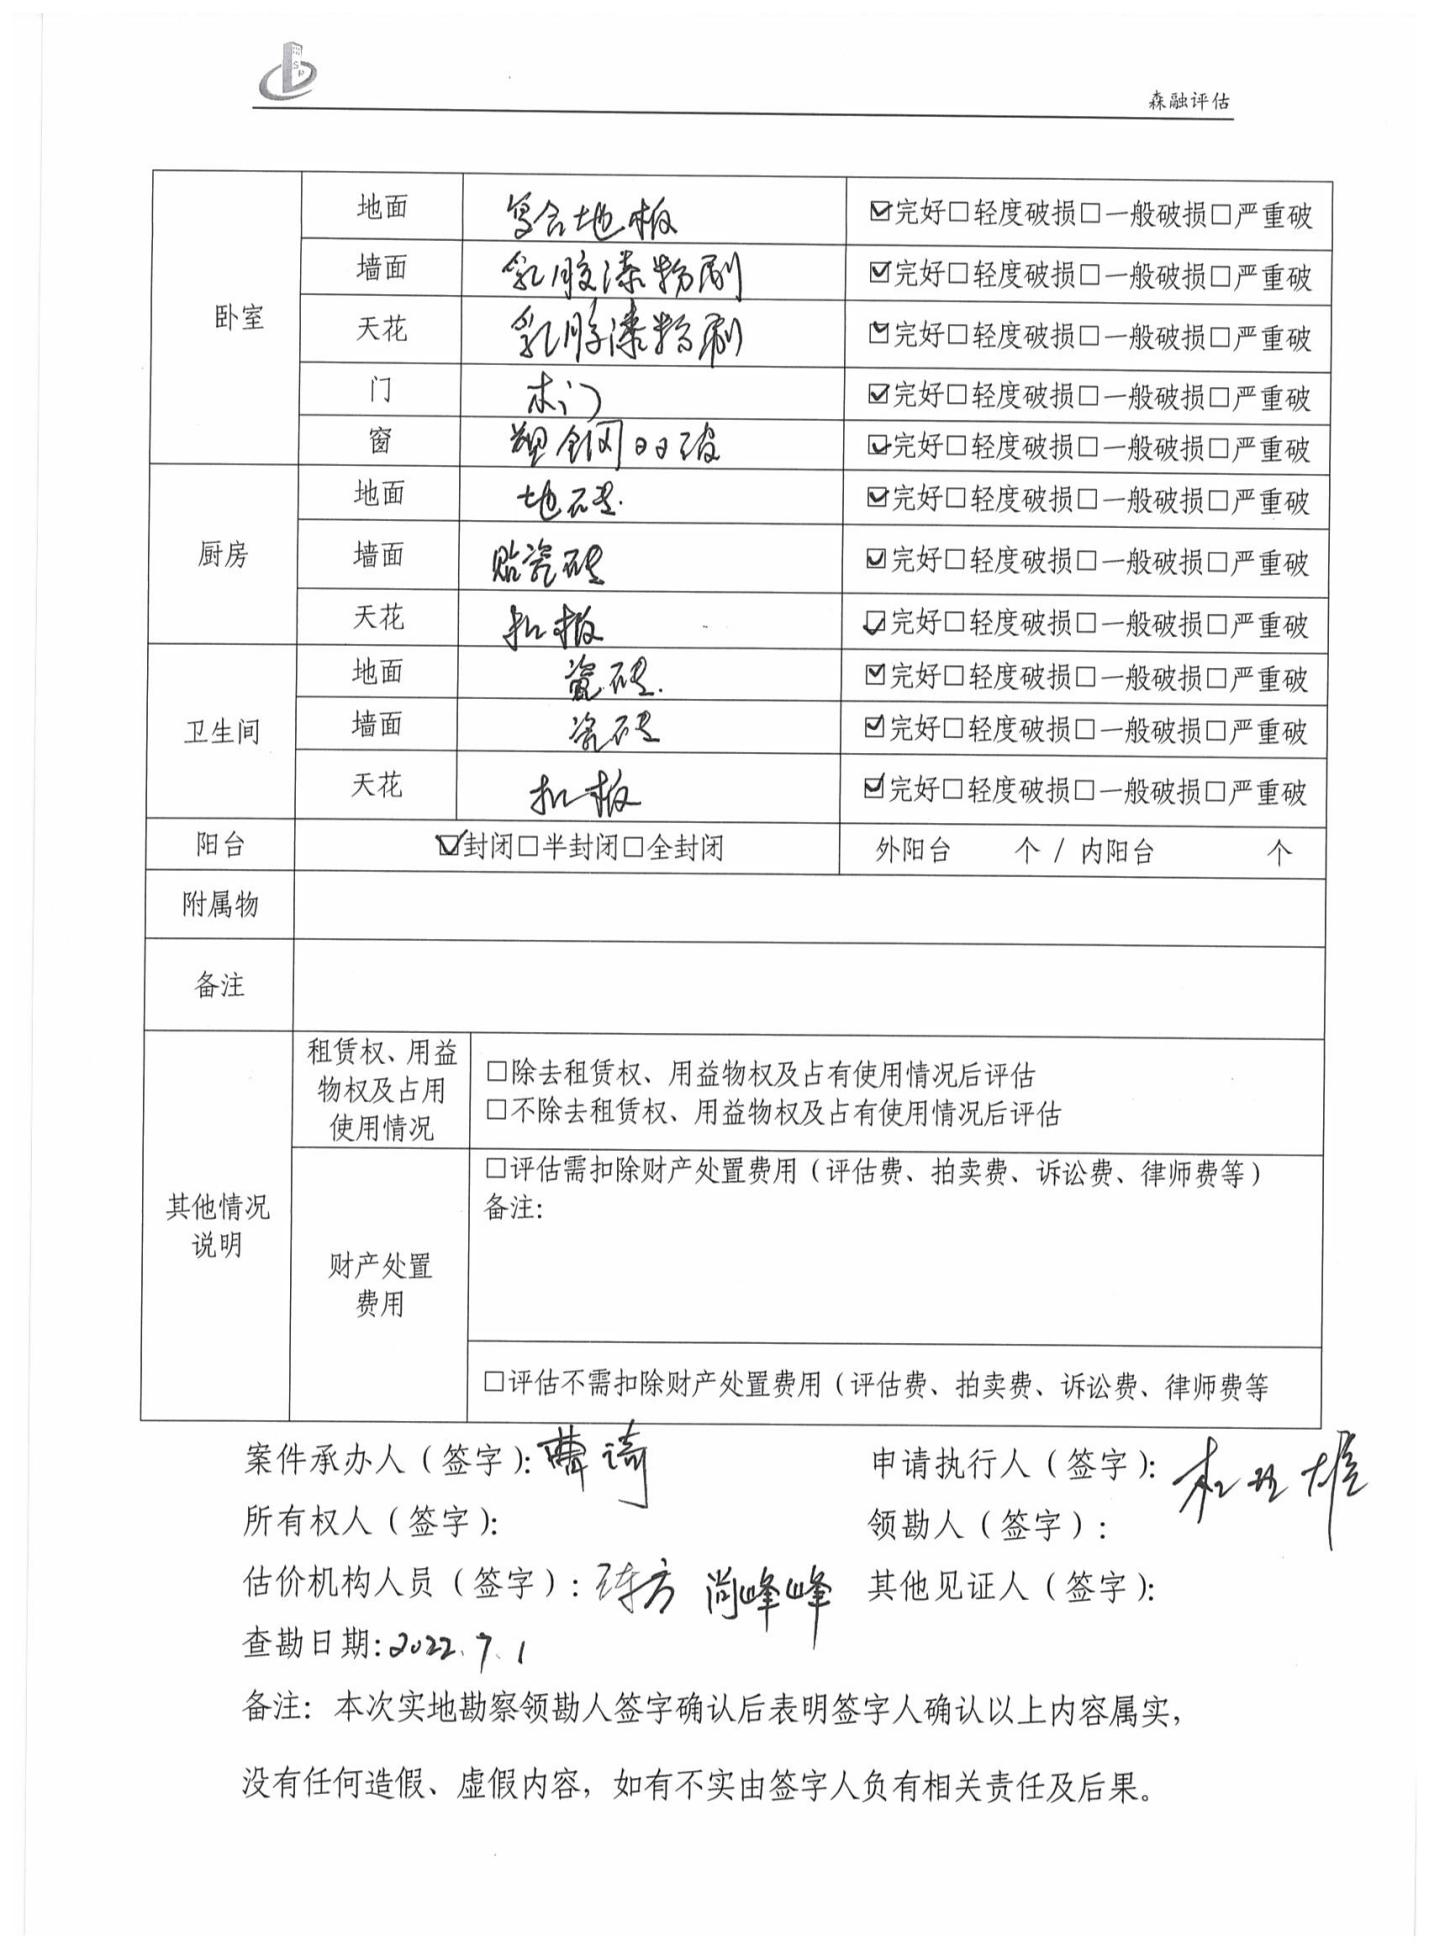 SP
森融评估
卧室
地面 复合地板 ☑完好□轻度破损□一般破损□严重破
墙面 乳胶漆粉刷 ☑完好□轻度破损□一般破损□严重破
天花 乳胶漆粉刷 ☑完好□轻度破损□一般破损□严重破
门 木门 ☑完好□轻度破损□一般破损□严重破
窗 塑钢 ☑完好□轻度破损□一般破损□严重破
厨房
地面 地砖 ☑完好□轻度破损□一般破损□严重破
墙面 贴瓷砖 ☑完好□轻度破损□一般破损□严重破
天花 扣板 ☑完好□轻度破损□一般破损□严重破
卫生间
地面 瓷砖 ☑完好□轻度破损□一般破损□严重破
墙面 瓷砖 ☑完好□轻度破损□一般破损□严重破
天花 扣板 ☑完好□轻度破损□一般破损□严重破
阳台 ☑封闭□半封闭□全封闭 外阳台 个 / 内阳台 个
附属物
备注
其他情况
说明
租赁权、用益
物权及占用
使用情况
□除去租赁权、用益物权及占有使用情况后评估
□不除去租赁权、用益物权及占有使用情况后评估
财产处置
费用
□评估需扣除财产处置费用（评估费、拍卖费、诉讼费、律师费等）
备注：
□评估不需扣除财产处置费用（评估费、拍卖费、诉讼费、律师费等
案件承办人（签字）：曹琦 申请执行人（签字）：
所有权人（签字）： 领勘人（签字）：
估价机构人员（签字）： 尚峰峰 其他见证人（签字）：
查勘日期：2022.7.1
备注：本次实地勘察领勘人签字确认后表明签字人确认以上内容属实，
没有任何造假、虚假内容，如有不实由签字人负有相关责任及后果。